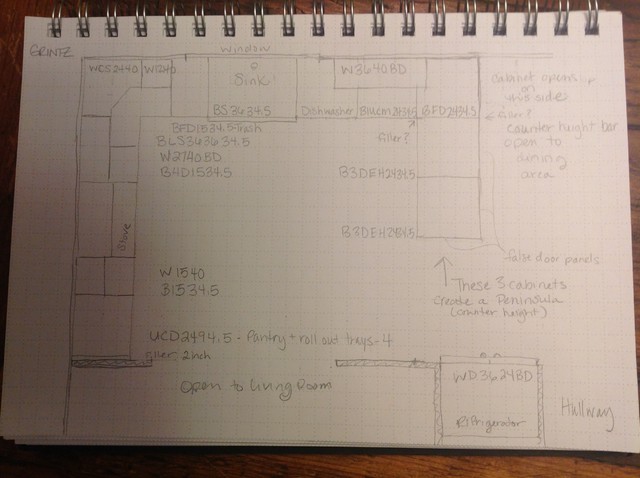 GRINTZ
window
WCS2440 W1240
Sink
W3640BD
cabinet opens up
on
this side
BS3634.5
Dishwasher
BFD2434.5
filler?
BFD1534.5 Trash
BLS363634.5
W2740BD
B4D1534.5
filler?
counter height bar
open to
dining
area
B3DEH2434.5
Stove
B3DEH2434.5
false door panels
W1540
B1534.5
These 3 cabinets
create a Peninsula
(counter height)
UCD2494.5 - Pantry + roll out trays - 4
filler 2 inch
open to living room
WD3624BD
Refrigerator
Hallway